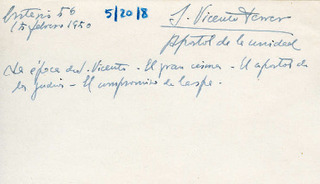 5/20/8
15 febrero 1950
S. Vicente Ferrer
Apóstol de la unidad
La época de S. Vicente - El gran cisma - El apóstol de
los judíos - El compromiso de Caspe -